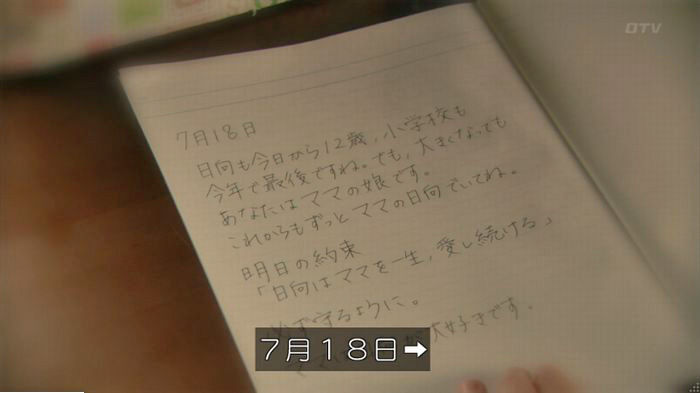 OTV
7月18日
日向も今日から12歳,小学校も
今年で最後ですね。でも,大きくなっても
あなたはママの娘です。
これからもずっとママの日向でいてね。
明日の約束
「日向はママを一生,愛し続ける」
必ず守るように。
大好きです。
7月18日➡